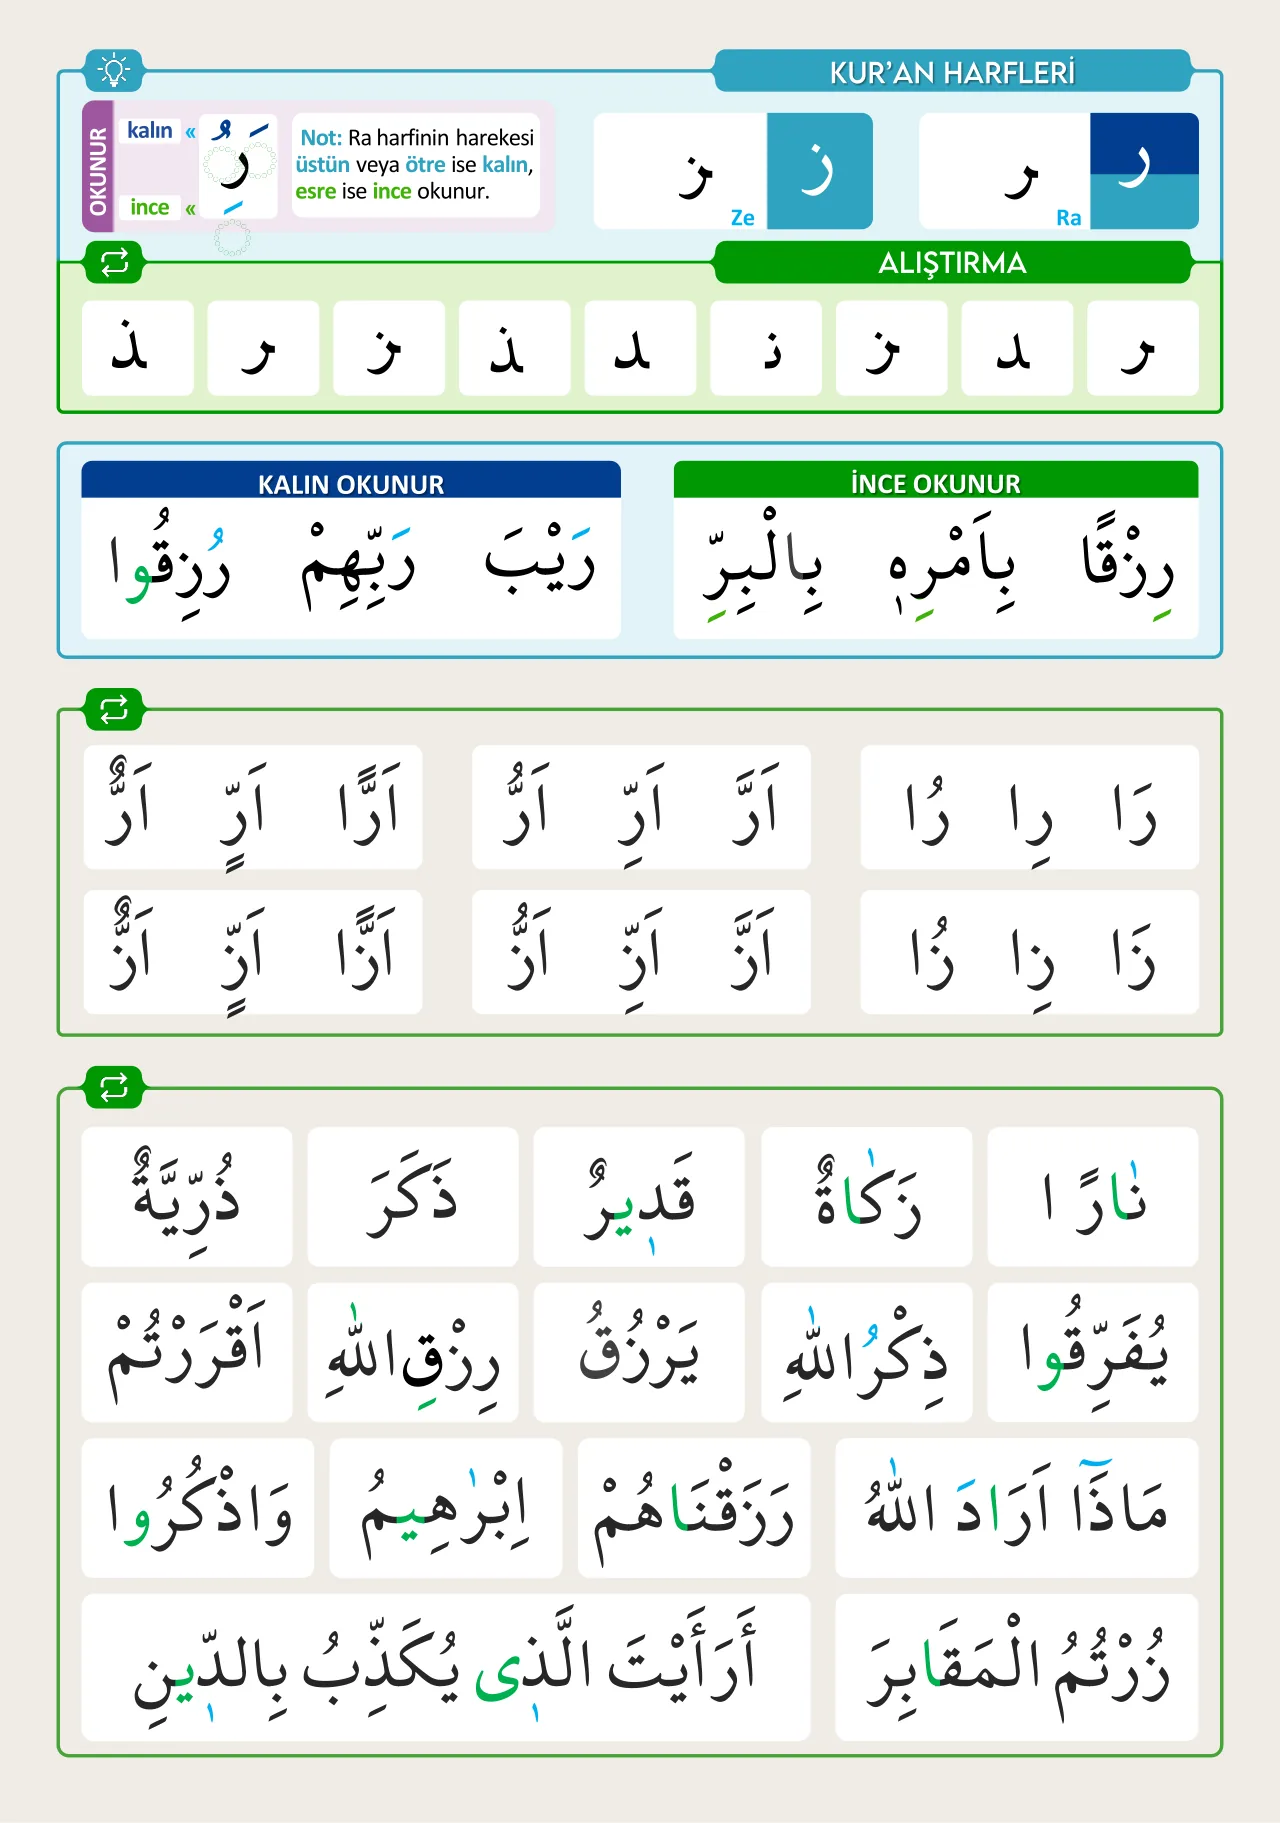 KUR’AN HARFLERİ
ر ر Ra
ز ز Ze
Not: Ra harfinin harekesi
üstün veya ötre ise kalın,
esre ise ince okunur.
رَُِ
kalın «
ince «
OKUNUR
ALIŞTIRMA
ر ـد ز ذ ـد ـذ ز ر ـذ
İNCE OKUNUR
رِزْقًا بِاَمْرِهٖ بِالْبِرِّ
KALIN OKUNUR
رَيْبَ رَبِّهِمْ رُزِقُوا
رَا رِا رُا اَرَّ اَرِّ اَرُّ اَرًّا اَرٍّ اَرٌّ
زَا زِا زُا اَزَّ اَزِّ اَزُّ اَزًّا اَزٍّ اَزٌّ
نٰارًا زَكٰاةٌ قَدٖيرٌ ذَكَرَ ذُرِّيَّةٌ
يُفَرِّقُوا ذِكْرُ اللّٰهِ يَرْزُقُ رِزْقِ اللّٰهِ اَقْرَرْتُمْ
مَاذَٓا اَرَادَ اللّٰهُ رَزَقْنَاهُمْ اِبْرٰهِيمُ وَاذْكُرُوا
زُرْتُمُ الْمَقَابِرَ أَرَأَيْتَ الَّذٖى يُكَذِّبُ بِالدّٖينِ